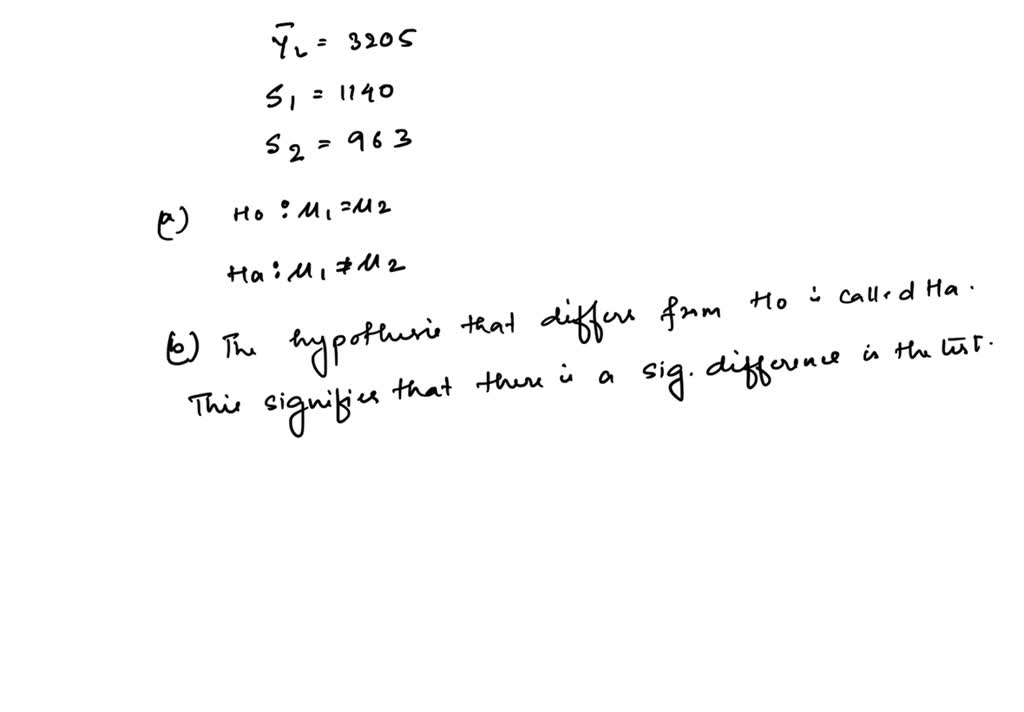 Ȳ₂ = 3205
S₁ = 1140
S₂ = 963
(a) Ho : μ₁ = μ₂
Ha : μ₁ ≠ μ₂
(b) The hypothesis that differs from Ho is called Ha.
This signifies that there is a sig. difference in the test.